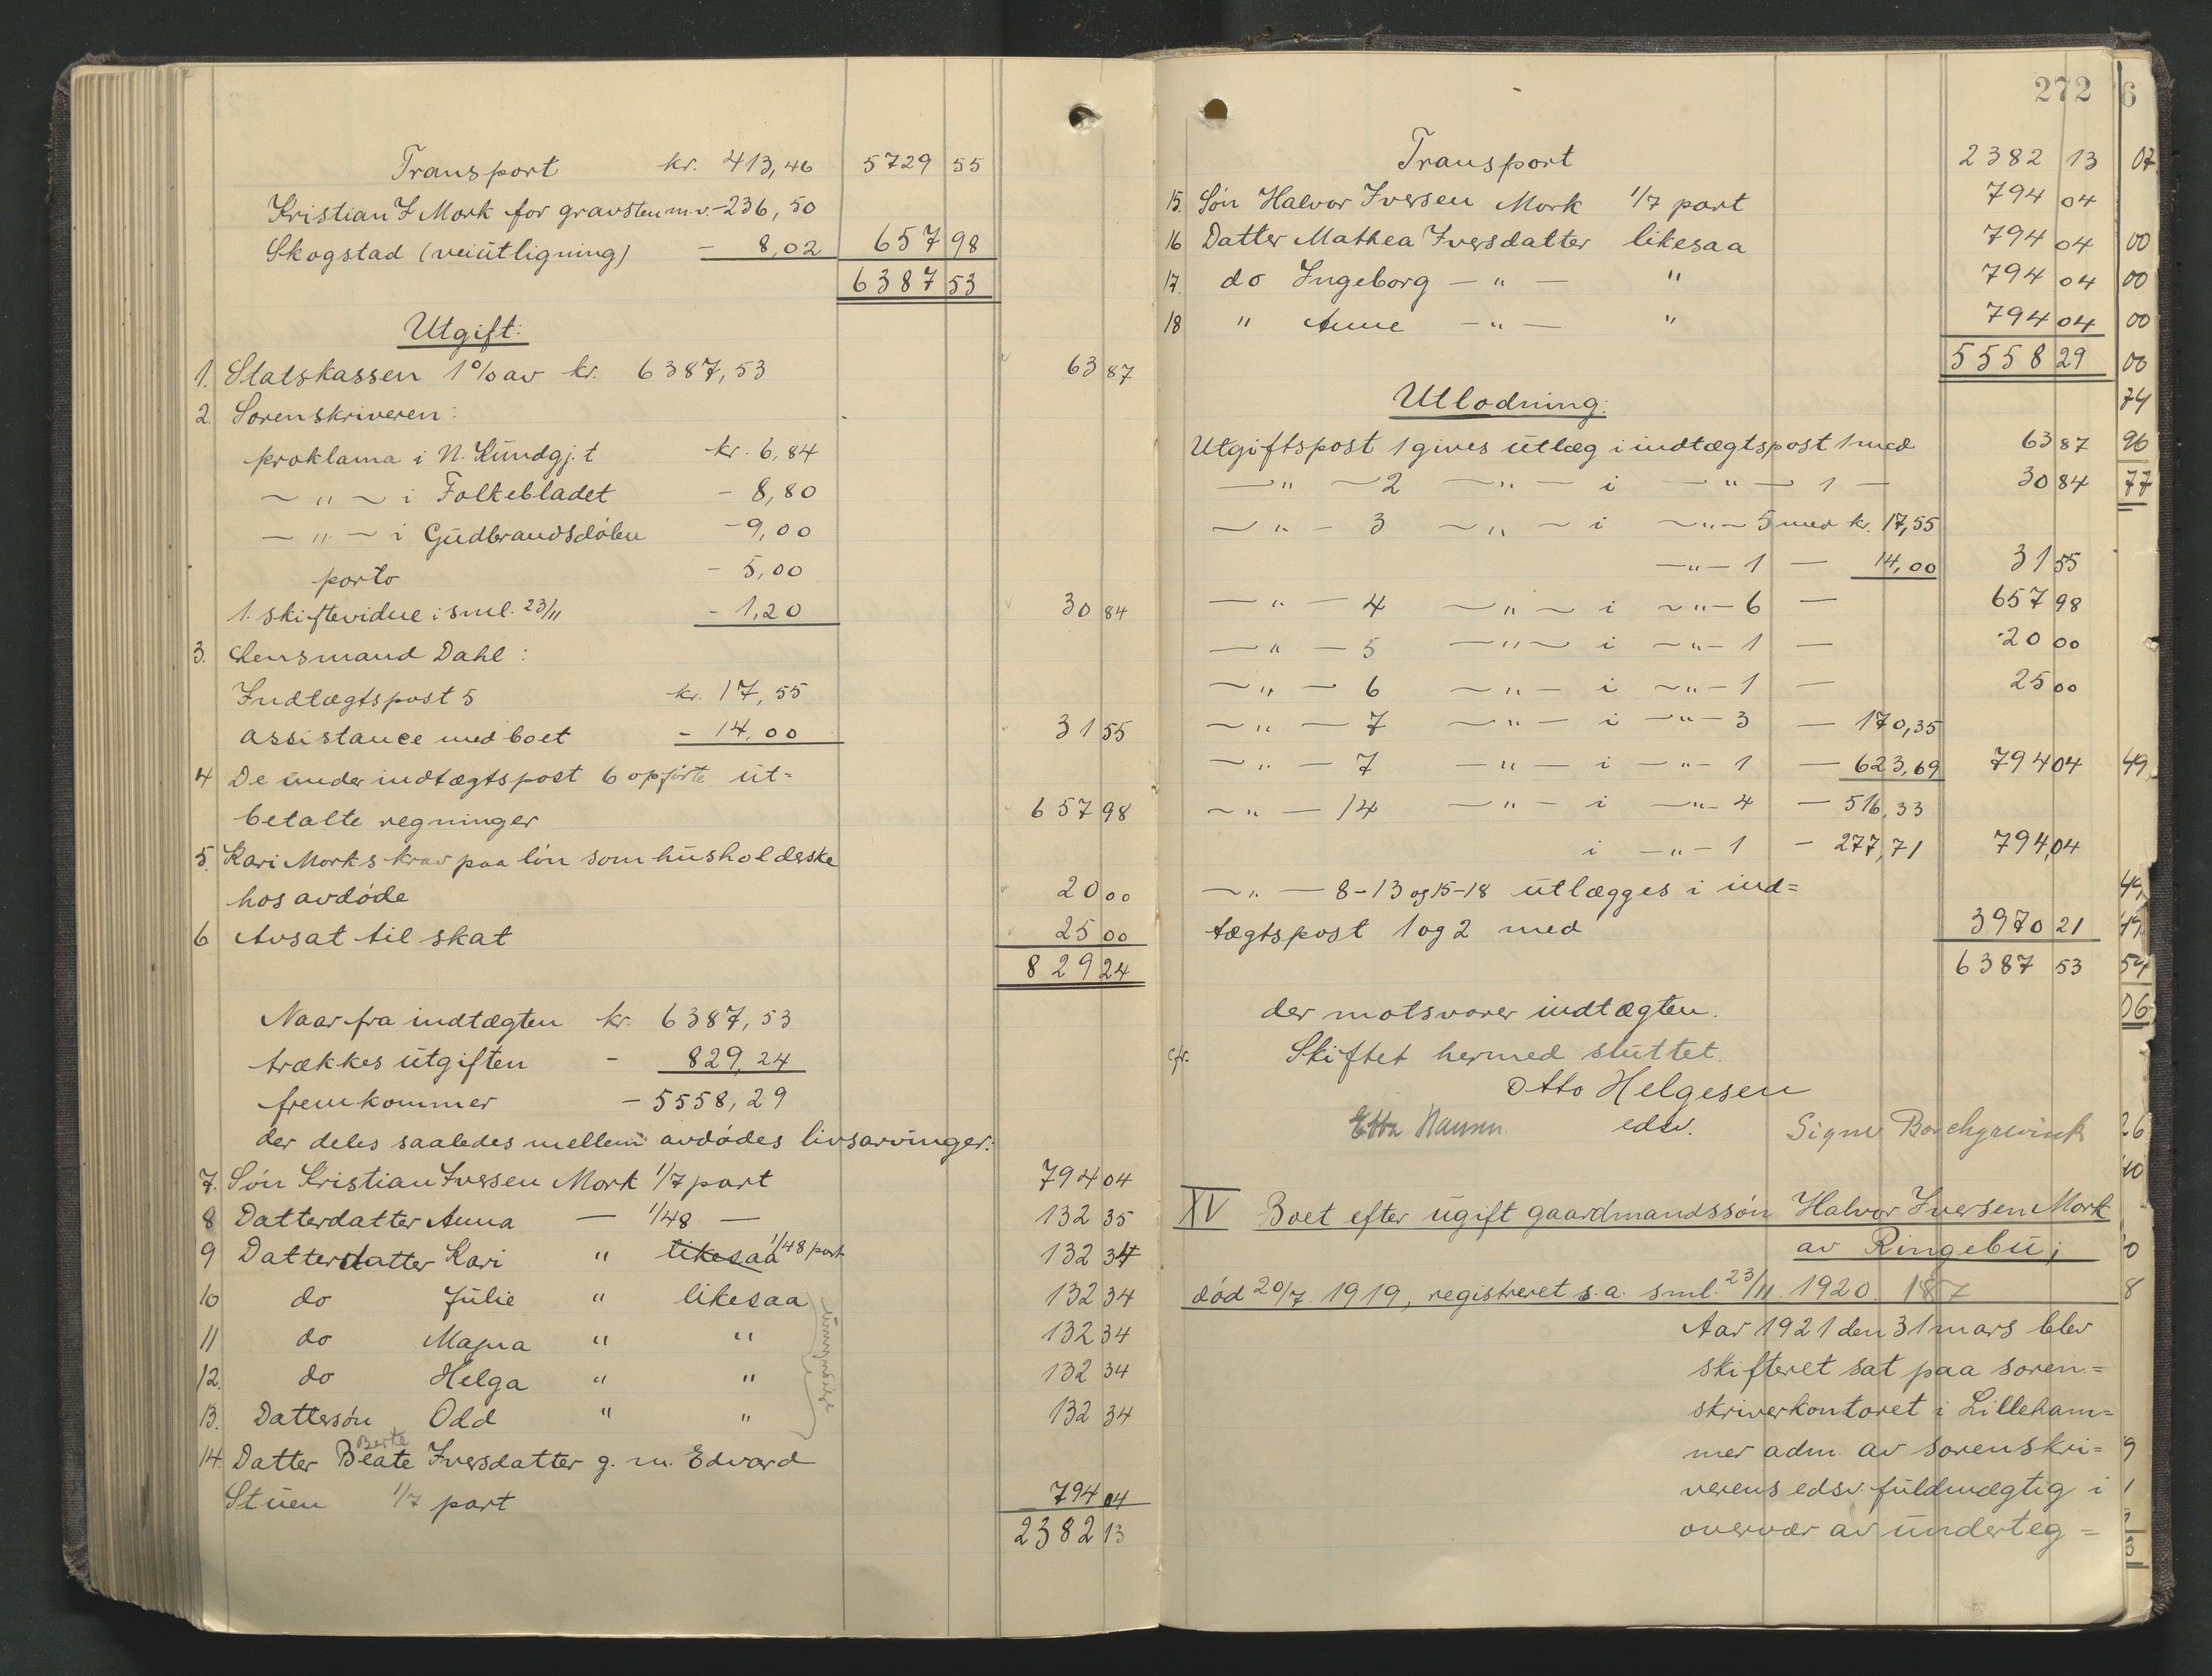 Transport kr. 413,46 5729 55
Kristian I Mork for gravsten m.v. - 236,50
Skogstad (veiutligning) - 8,02 657 98
6387 53
Utgift:
1. Statskassen 1% av kr. 6387,53 63 87
2. Sorenskriveren:
proklama i N. Kundgj. t kr. 6,84
— " — i Folkebladet - 8,80
— " — i Gudbrandsdølen - 9,00
porto - 5,00
1. skiftevidne i sml. 23/11 - 1,20 30 84
3. Lensmand Dahl:
Indtægtspost 5 kr. 17,55
assistance med boet - 14,00 31 55
4 De under indtægtspost 6 opførte ut=
betalte regninger 657 98
5. Kari Morks krav paa løn som husholderske
hos avdøde 20 00
6 Avsat til skat 25 00
829 24
Naar fra indtægten kr. 6387,53
trækkes utgiften - 829,24
fremkommer - 5558,29
der deles saaledes mellem avdødes livsarvinger:
7. Søn Kristian Iversen Mork 1/7 part 794 04
8 Datterdatter Anna — 1/48 — 132 35
9 Datterdatter Kari " likesaa 1/48 part 132 34
10 do Julie " likesaa 132 34
11 do Magna " " 132 34
12. do Helga " " 132 34
13. Dattersøn Odd " " 132 34
umyndige
Berte
14. Datter Beate Iversdatter g. m. Edvard
Stuen 1/7 part 794 04
2382 13
272
Transport 2382 13
15. Søn Halvor Iversen Mork 1/7 part 794 04
16 Datter Mathea Iversdatter likesaa 794 04
17. do Ingeborg — " — " 794 04
18 " Anne — " — " 794 04
5558 29
Utlodning:
Utgiftspost 1 gives utlæg i indtægtspost 1 med 63 87
— " — 2 — " — i — " — 1 — 30 84
— " — 3 — " — i — " — 5 med kr. 17,55
— " — 1 — 14,00 31 55
— " — 4 — " — i — " — 6 — 657 98
— " — 5 — " — i — " — 1 — 20 00
— " — 6 — " — i — " — 1 — 25 00
— " — 7 — " — i — " — 3 — 170,35
— " — 7 — " — i — " — 1 — 623,69 794 04
— " — 14 — " — i — " — 4 — 516,33
i — " — 1 - 277,71 794,04
— " — 8-13 og 15-18 utlægges i ind=
tægtspost 1 og 2 med 3970 21
6387 53
der motsvarer indtægten.
Skiftet hermed sluttet.
Otto Helgesen
edsv. Signe Borchgrevink
XV Boet efter ugift gaardmandssøn Halvor Iversen Mork
av Ringebu;
død 20/7. 1919, registreret s.a. sml. 23/11. 1920. 187
Aar 1921 den 31 mars blev
skifteret sat paa soren=
skriverkontoret i Lilleham=
mer adm. av sorenskri=
verens edsv. fuldmægtig i
overvær av underteg=